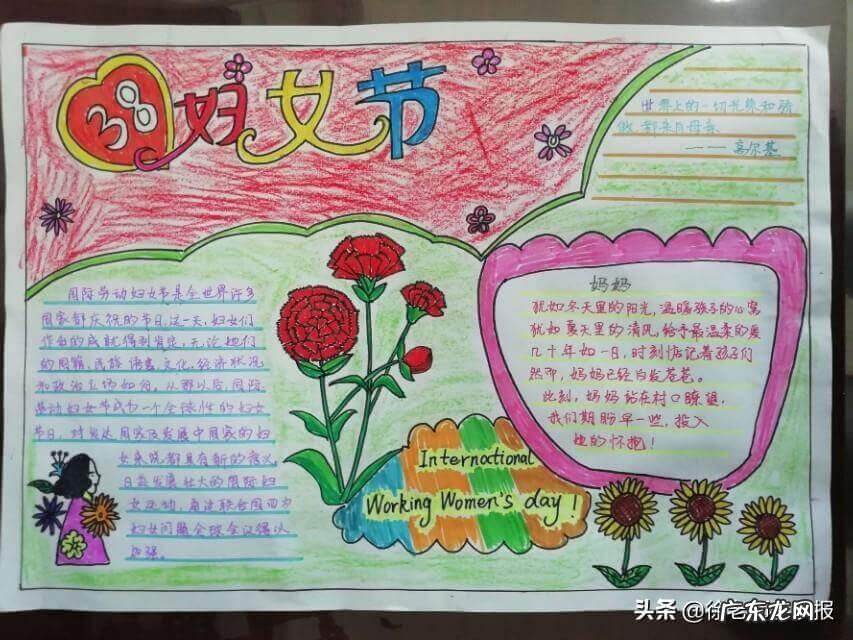 38妇女节
世界上的一切光荣和骄
傲,都来自母亲
——高尔基
国际劳动妇女节是全世界许多
国家都庆祝的节日。这一天,妇女们
作出的成就得到肯定,无论她们
的国籍、民族、语言、文化、经济状况
和政治立场如何。从那以后,国际
劳动妇女节成为一个全球性的妇女
节日,对发达国家及发展中国家的妇
女来说都具有新的意义
日益发展壮大的国际妇
女运动,有法联合国四次
妇女问题全球会议得以
加强。
妈妈
犹如冬天里的阳光,温暖孩子的心窝
犹如夏天里的清风,给予最温柔的
几十年如一日,时刻惦记着孩子们
然而,妈妈已经白发苍苍。
此刻,妈妈站在村口瞭望,
我们期盼早一些,投入
她的怀抱!
Internoctional
Working Women's day!
头条 @
广东龙网报